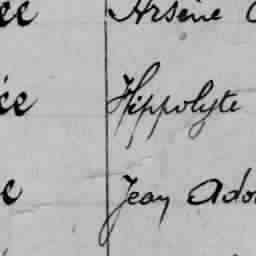 ée Arsène
ée Hippolyte
e Jean Ado